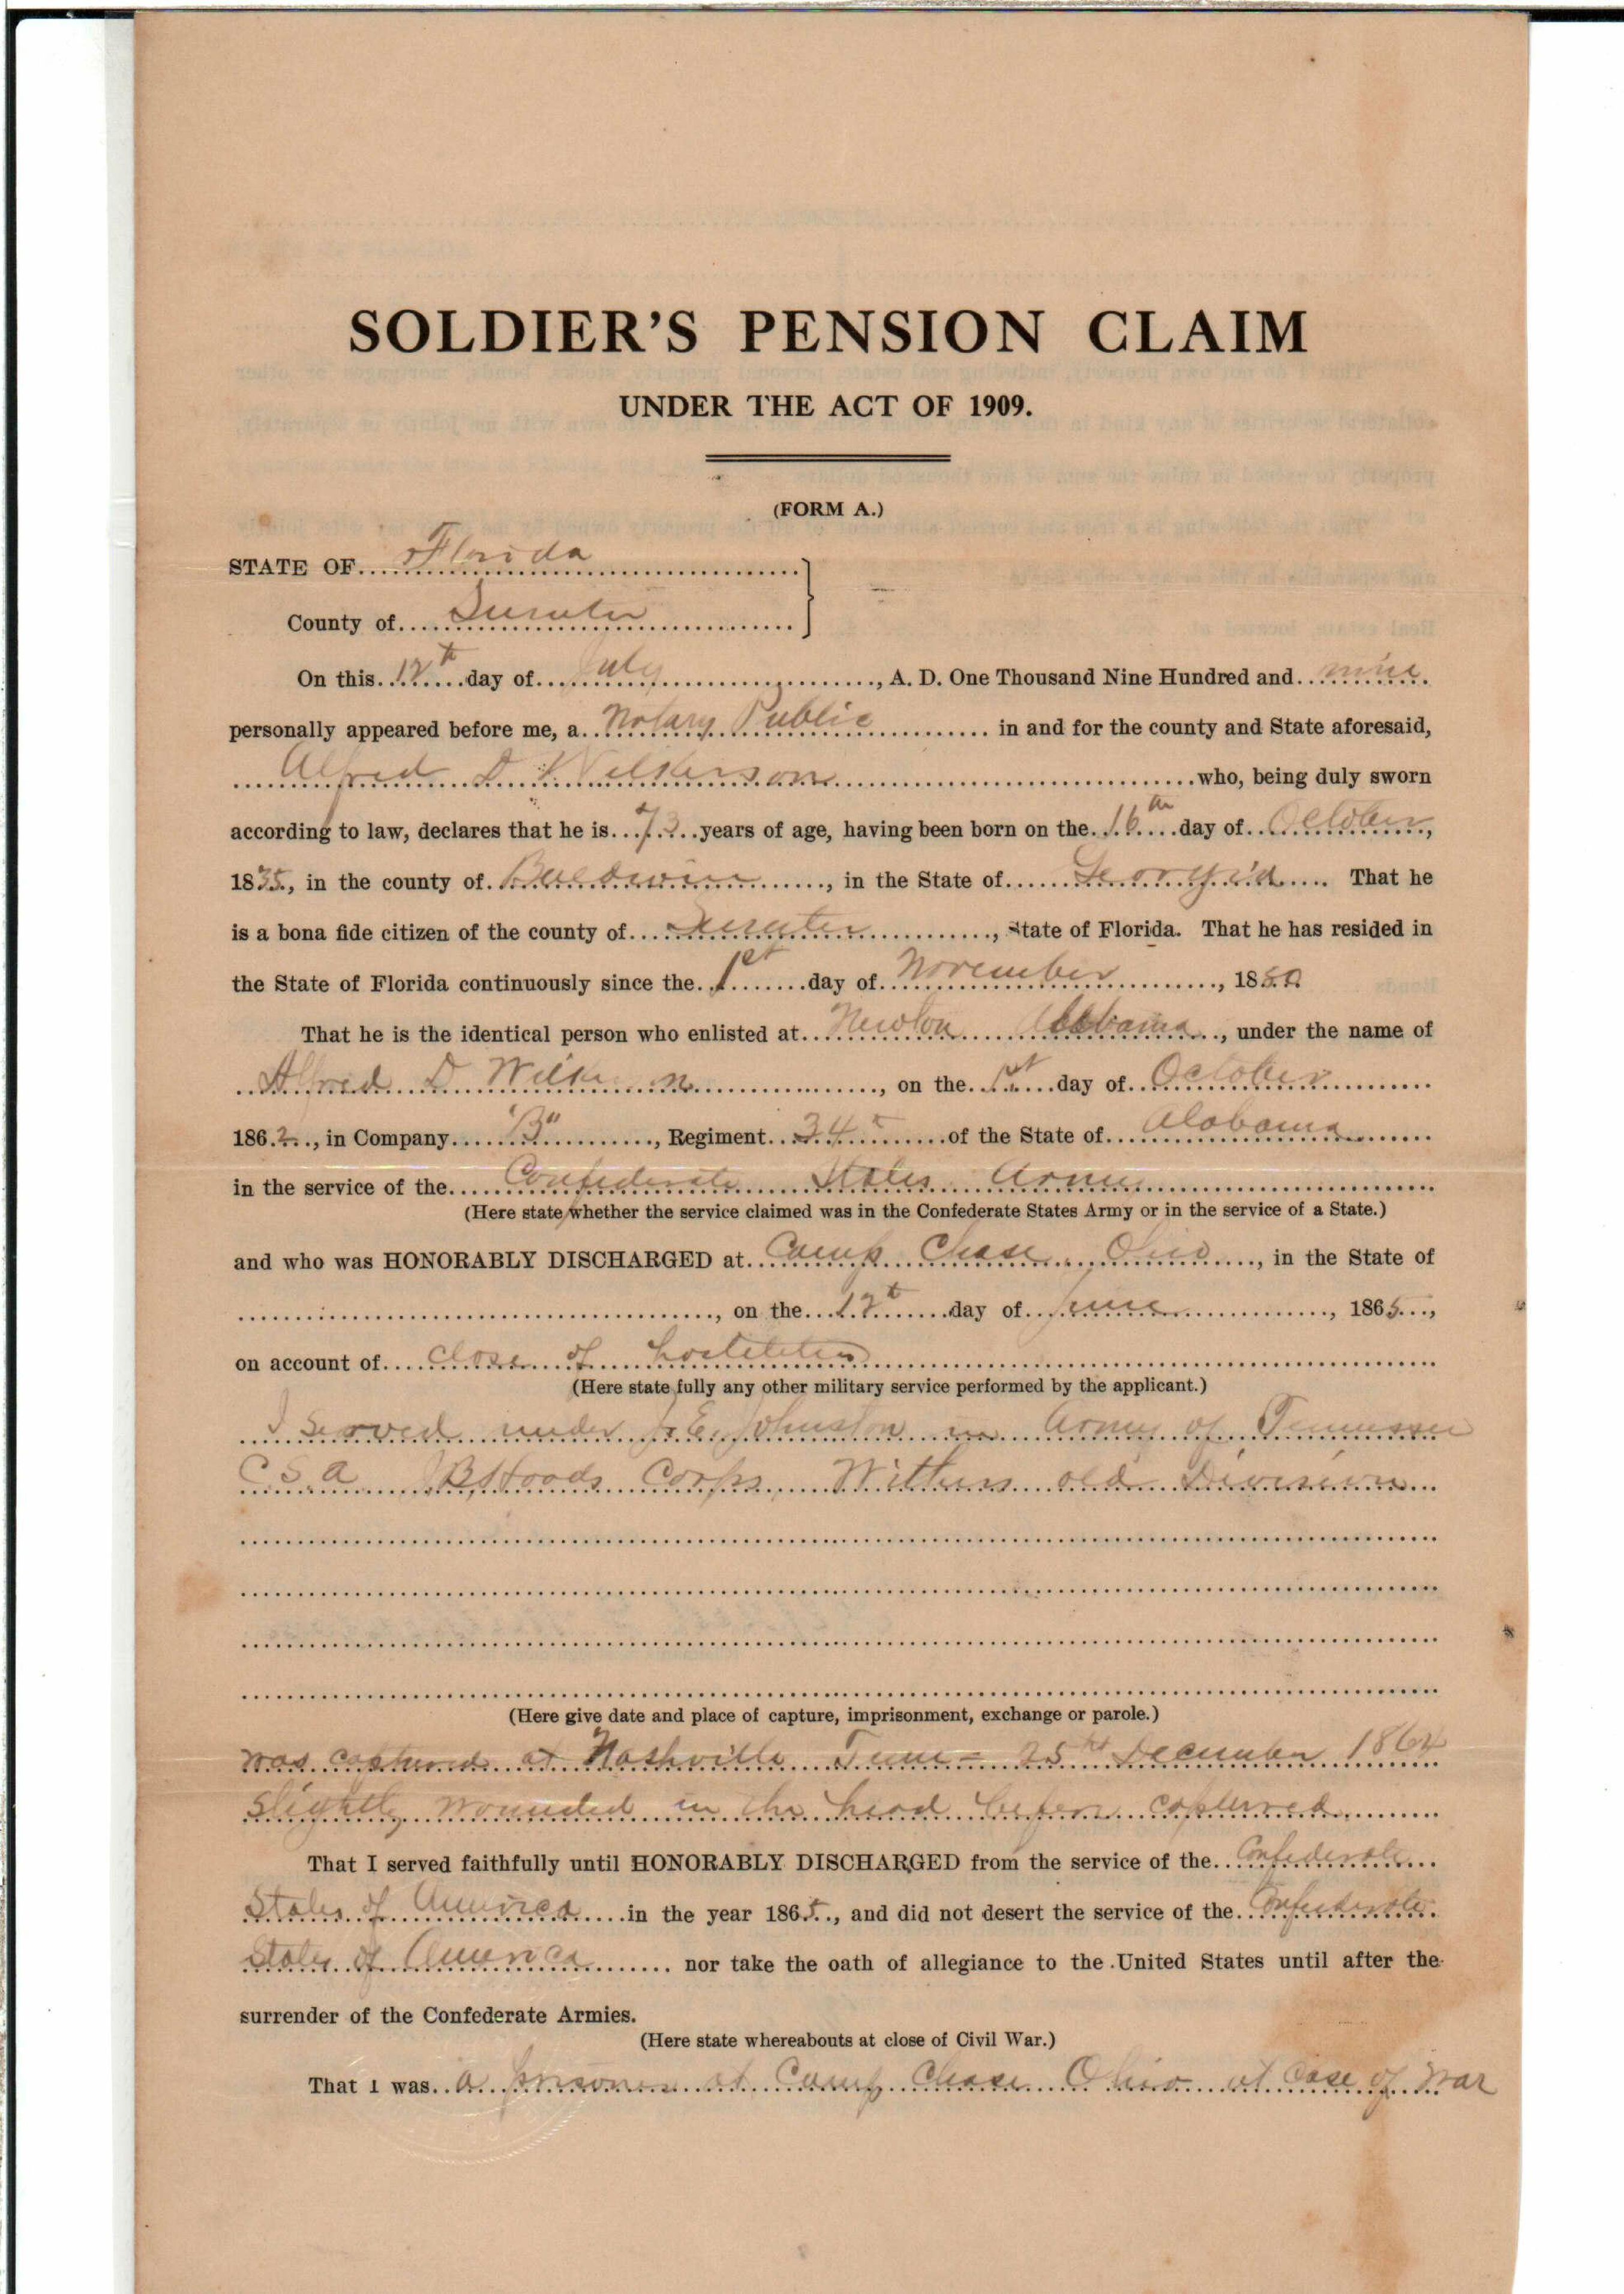 SOLDIER'S PENSION CLAIM
UNDER THE ACT OF 1909.
(FORM A.)
STATE OF Florida
County of Sumter
On this 12th day of July, A. D. One Thousand Nine Hundred and nine
personally appeared before me, a Notary Public in and for the county and State aforesaid,
Alfred D Wilkerson who, being duly sworn
according to law, declares that he is 73 years of age, having been born on the 16th day of October,
1835, in the county of Baldwin, in the State of Georgia. That he
is a bona fide citizen of the county of Sumter, State of Florida. That he has resided in
the State of Florida continuously since the 1st day of November, 18
That he is the identical person who enlisted at Newton Alabama, under the name of
Alfred D, on the 1st day of October
1862, in Company "B", Regiment 34 of the State of Alabama
in the service of the Confederate States Army
(Here state whether the service claimed was in the Confederate States Army or in the service of a State.)
and who was HONORABLY DISCHARGED at Camp Chase Ohio, in the State of
, on the 12th day of June, 1865,
on account of close of hostilities
(Here state fully any other military service performed by the applicant.)
I served under J. E. Johnston in Army of Tennessee
C S A J B Hoods Corps, Withers old Division
(Here give date and place of capture, imprisonment, exchange or parole.)
was captured at Nashville Tenn - 25th December 1864
slightly wounded in the head before captured
That I served faithfully until HONORABLY DISCHARGED from the service of the Confederate
States of America in the year 1865, and did not desert the service of the Confederate
States of America nor take the oath of allegiance to the United States until after the
surrender of the Confederate Armies.
(Here state whereabouts at close of Civil War.)
That I was a prisoner at Camp Chase Ohio at Close of War